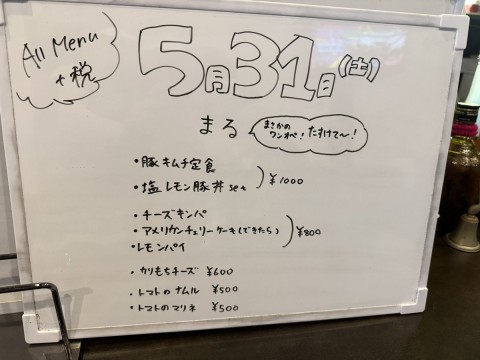 All Menu
+税
5月31日(土)
まる
まさかの
ワンオペ! たすけて〜!
・豚キムチ定食
・塩レモン豚丼set
¥1000
・チーズキンパ
・アメリカンチェリーケーキ(できたら)
・レモンパイ
¥800
・かりもちチーズ ¥600
・トマトのナムル ¥500
・トマトのマリネ ¥500